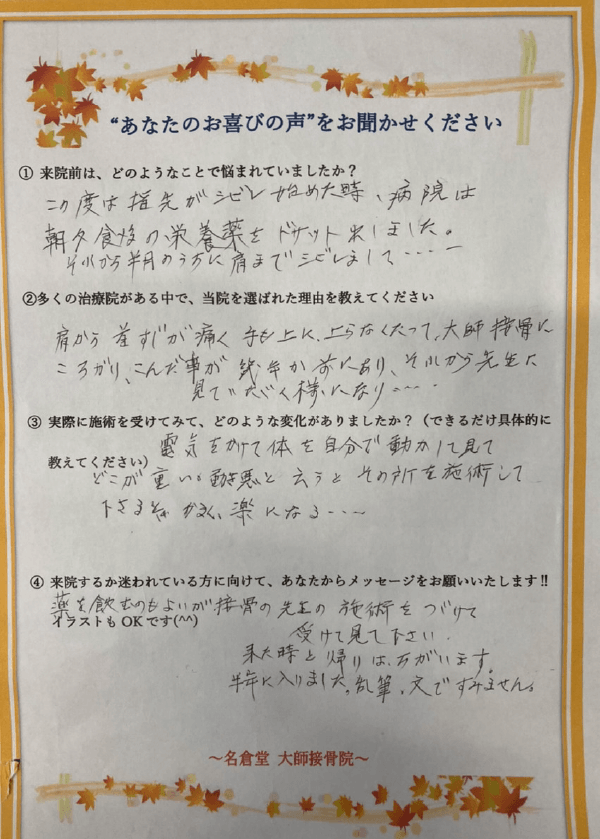 “あなたのお喜びの声”をお聞かせください
① 来院前は、どのようなことで悩まれていましたか？
この度は指先がシビレ始めた時、病院は
朝夕食後の栄養薬をドサット出しました。
それから半月のうちに肩までシビレまして・・・・ー
②多くの治療院がある中で、当院を選ばれた理由を教えてください
肩から首すじが痛く手も上に上らなくなって、大師接骨に
ころがり、こんだ事が幾年か前にあり、それから先生に
見ていただく様になり・・・・
③ 実際に施術を受けてみて、どのような変化がありましたか？（できるだけ具体的に
電気をかけて体を自分で動かして見て
教えてください）
どこが重い。動き悪と云うとその所を施術して
下さる かるく、楽になる・・・
④ 来院するか迷われている方に向けて、あなたからメッセージをお願いいたします‼
薬を飲むのもよいが接骨の先生の施術をつづけて
イラストも OK です(^^)
受けて見て下さい.
来た時と帰りはちがいます。
に入りました。乱筆、文ですみません。
～名倉堂 大師接骨院～